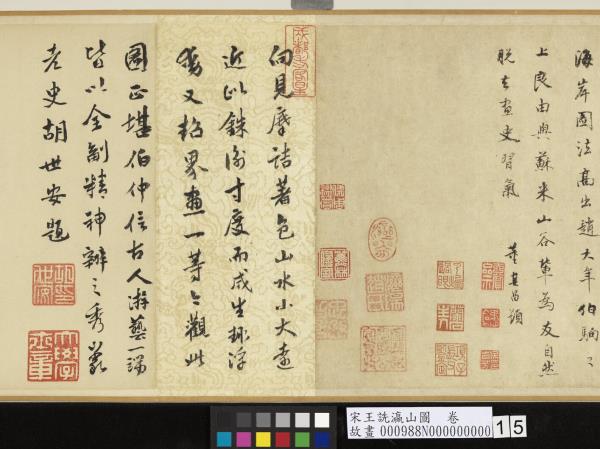 海岸圖法高出趙大年伯駒之
上良由與蘇米山谷輩為友自然
脫去畫史習氣
董其昌題
向見摩詰著色山水小大遠
近以銖衡寸度而成生趣浮
動又超界畫一等今觀此
圖正堪伯仲信古人游藝端
皆以全副精神辦之秀巖
老史胡世安題
宋王詵瀛山圖 卷
故畫 000988N000000000
15